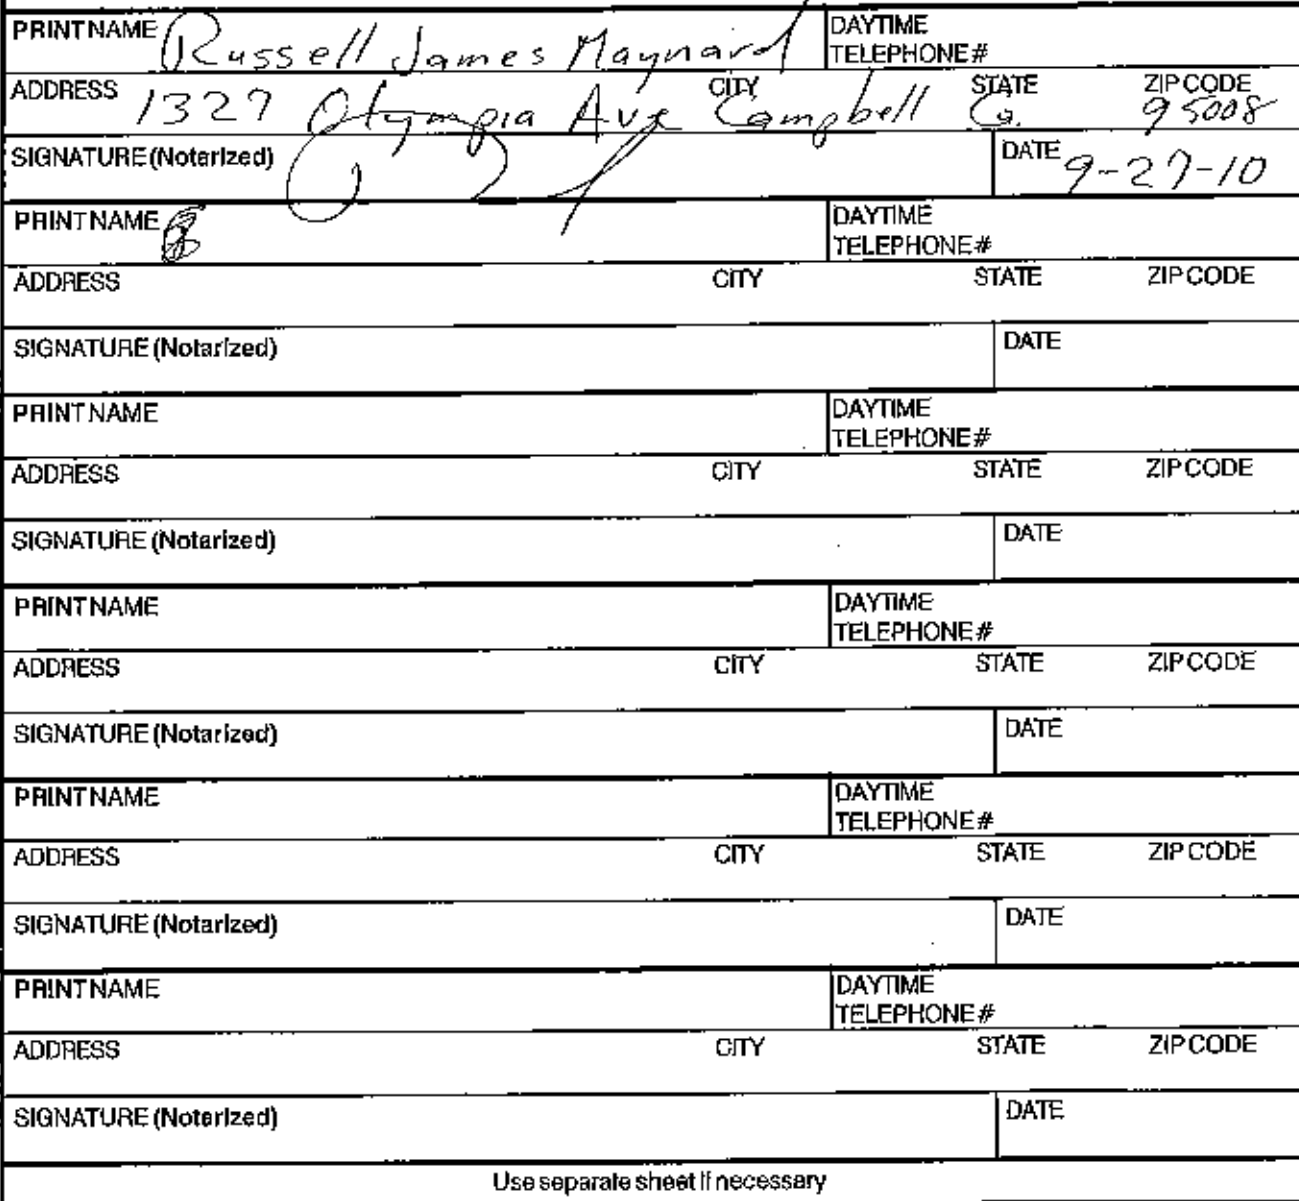 PRINT NAME Russell James Maynard DAYTIME TELEPHONE#
ADDRESS 1327 Olympia Ave CITY Campbell STATE Ca. ZIP CODE 95008
SIGNATURE (Notarized) DATE 9-27-10
PRINT NAME DAYTIME TELEPHONE#
ADDRESS CITY STATE ZIP CODE
SIGNATURE (Notarized) DATE
PRINT NAME DAYTIME TELEPHONE#
ADDRESS CITY STATE ZIP CODE
SIGNATURE (Notarized) DATE
PRINT NAME DAYTIME TELEPHONE#
ADDRESS CITY STATE ZIP CODE
SIGNATURE (Notarized) DATE
PRINT NAME DAYTIME TELEPHONE#
ADDRESS CITY STATE ZIP CODE
SIGNATURE (Notarized) DATE
PRINT NAME DAYTIME TELEPHONE#
ADDRESS CITY STATE ZIP CODE
SIGNATURE (Notarized) DATE
Use separate sheet if necessary